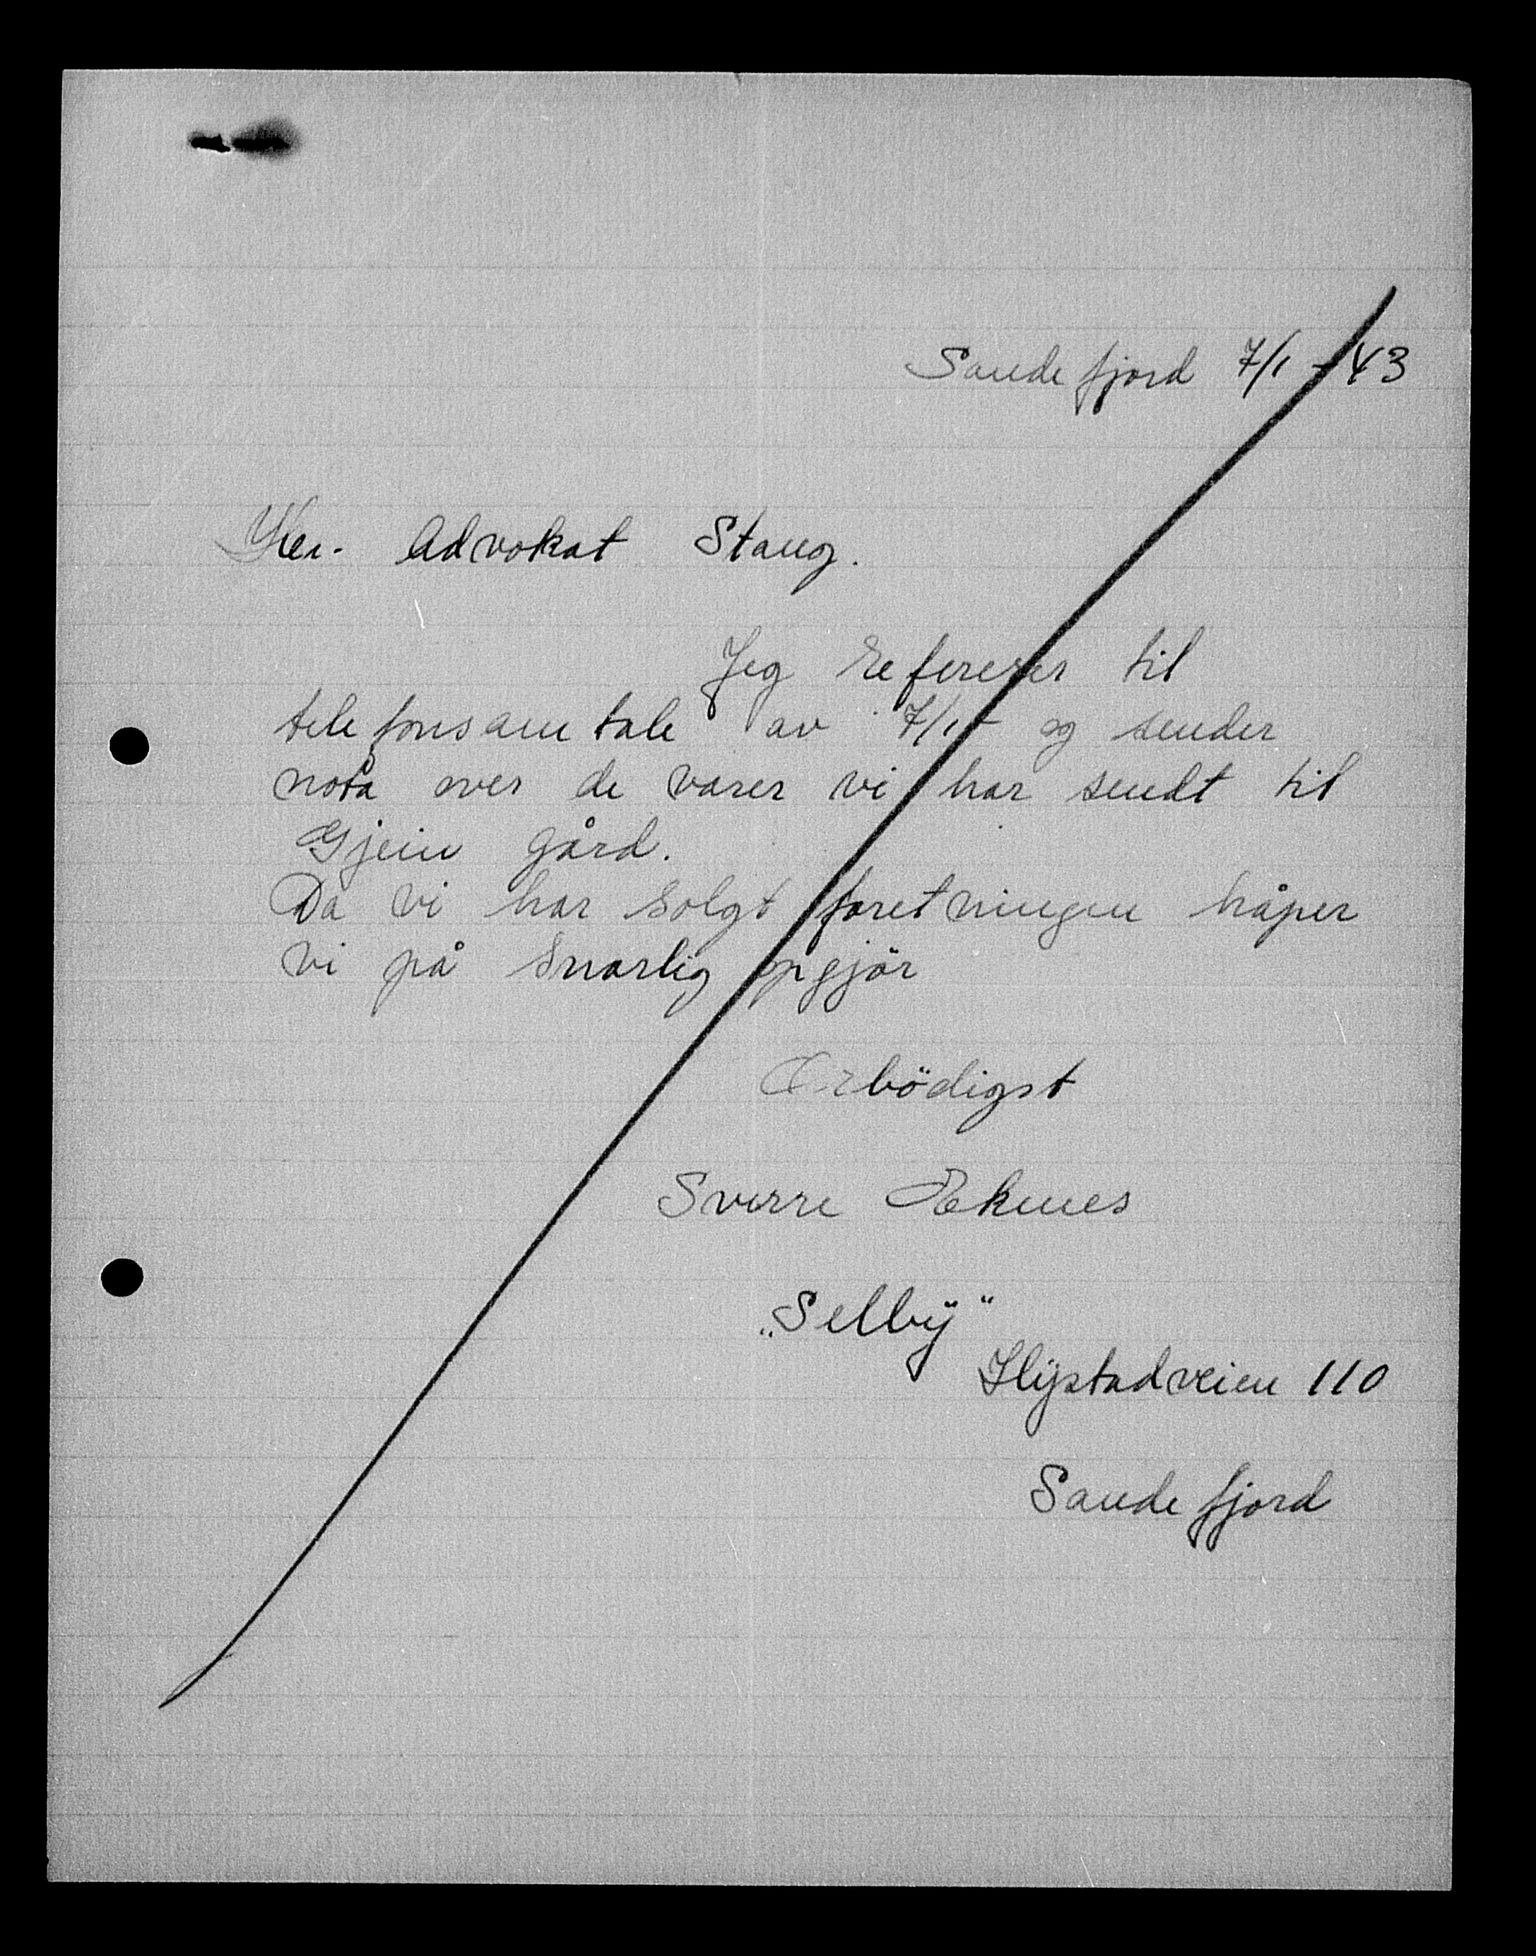 Sandefjord 7/1 - 43
Her. Advokat Stang.
Jeg refererer til
telefonsamtale av 7/1 - og sender
nota over de varer vi har sendt til
Gjein gård.
Da vi har solgt foretningen håper
vi på snarlig opgjör
Ærbödigst
Sverre Ekenes
"Selbÿ"
Hÿstadveien 110
Sandefjord